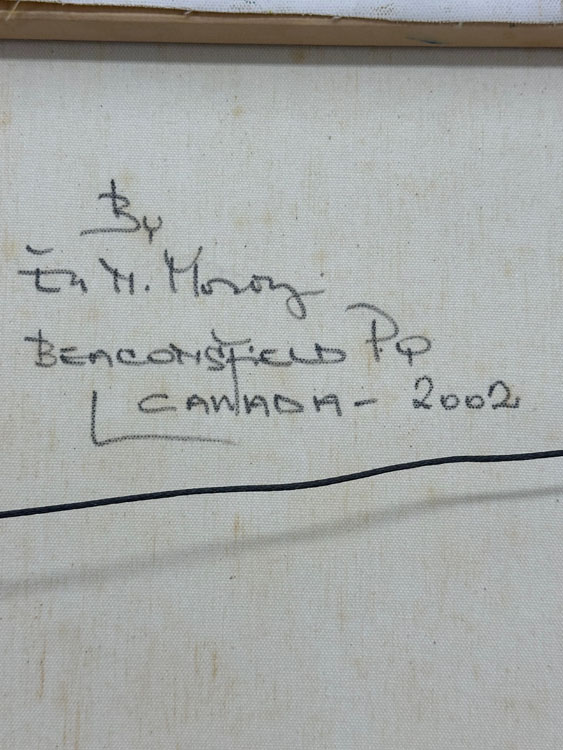 By
M. Moroz
BEACONSFIELD P.Q
CANADA - 2002